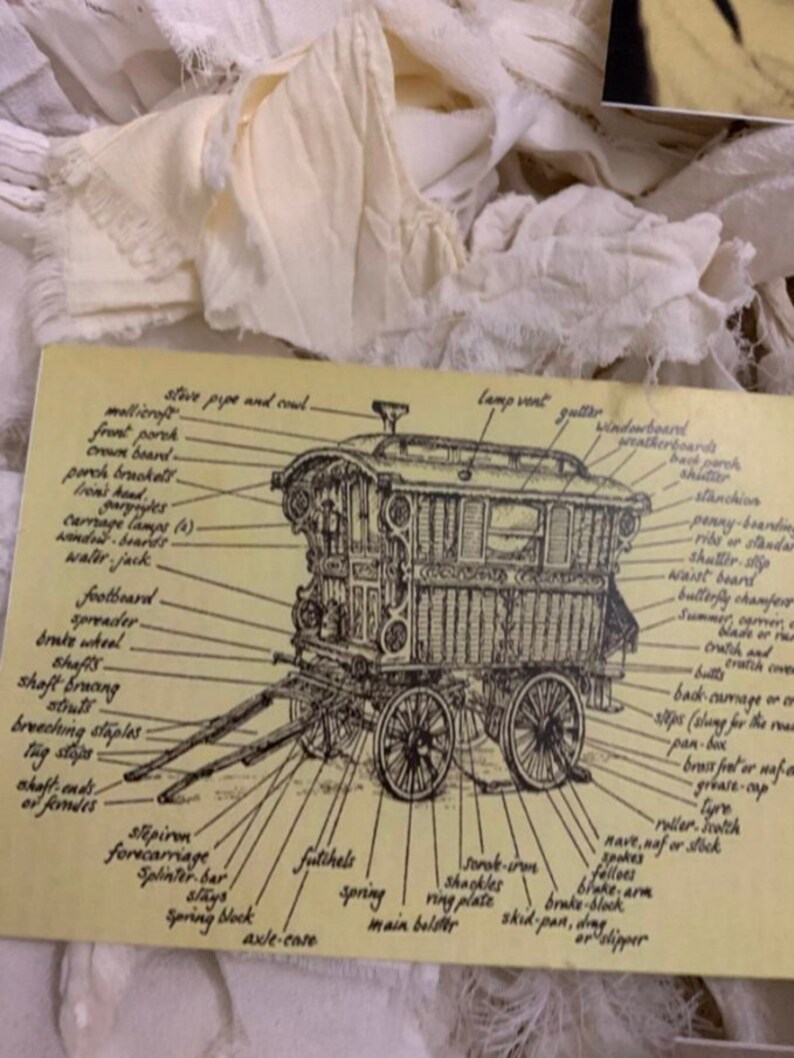 stove pipe and cowl
mollicroft
front porch
crown board
porch brackets
lion's head,
gargoyles
carriage lamps (2)
window-boards
water-jack
footboard
spreader
brake wheel
shafts
shaft bracing
struts
breeching staples
tug stops
shaft-ends
or ferrules
stepiron
forecarriage
splinter-bar
stays
spring block
axle-case
futchels
spring
main bolster
ring plate
shackles
scrole-iron
skid-pan, drag
or slipper
brake-block
brake-arm
felloes
spokes
nave, naf or stock
roller-scotch
tyre
grease-cap
brass fret or naf-
pan-box
steps (slung for the
back-carriage or
butts
cratch and
cratch
summer, carrier,
butterfly chamfers
waist board
shutter-stop
ribs or
penny-boarding
stanchion
shutter
back porch
weatherboards
windowboard
gutter
lamp vent